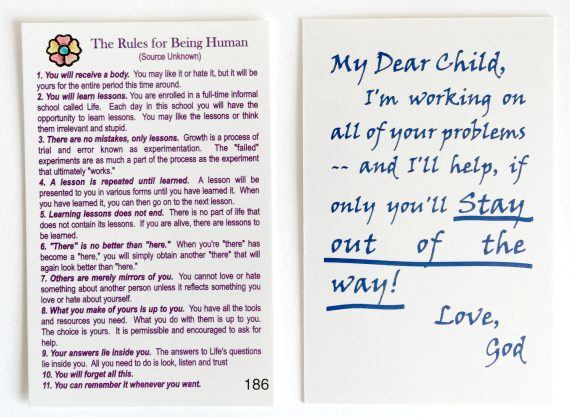 The Rules for Being Human
(Source Unknown)
1. You will receive a body. You may like it or hate it, but it will be
yours for the entire period this time around.
2. You will learn lessons. You are enrolled in a full-time informal
school called Life. Each day in this school you will have the
opportunity to learn lessons. You may like the lessons or think
them irrelevant and stupid.
3. There are no mistakes, only lessons. Growth is a process of
trial and error known as experimentation. The "failed"
experiments are as much a part of the process as the experiment
that ultimately "works."
4. A lesson is repeated until learned. A lesson will be
presented to you in various forms until you have learned it. When
you have learned it, you can then go on to the next lesson.
5. Learning lessons does not end. There is no part of life that
does not contain its lessons. If you are alive, there are lessons to
be learned.
6. "There" is no better than "here." When you're "there" has
become a "here," you will simply obtain another "there" that will
again look better than "here."
7. Others are merely mirrors of you. You cannot love or hate
something about another person unless it reflects something you
love or hate about yourself.
8. What you make of yours is up to you. You have all the tools
and resources you need. What you do with them is up to you.
The choice is yours. It is permissible and encouraged to ask for
help.
9. Your answers lie inside you. The answers to Life's questions
lie inside you. All you need to do is look, listen and trust
10. You will forget all this.
11. You can remember it whenever you want.
186
My Dear Child,
I'm working on
all of your problems
-- and I'll help, if
only you'll Stay
out of the
way!
Love,
God